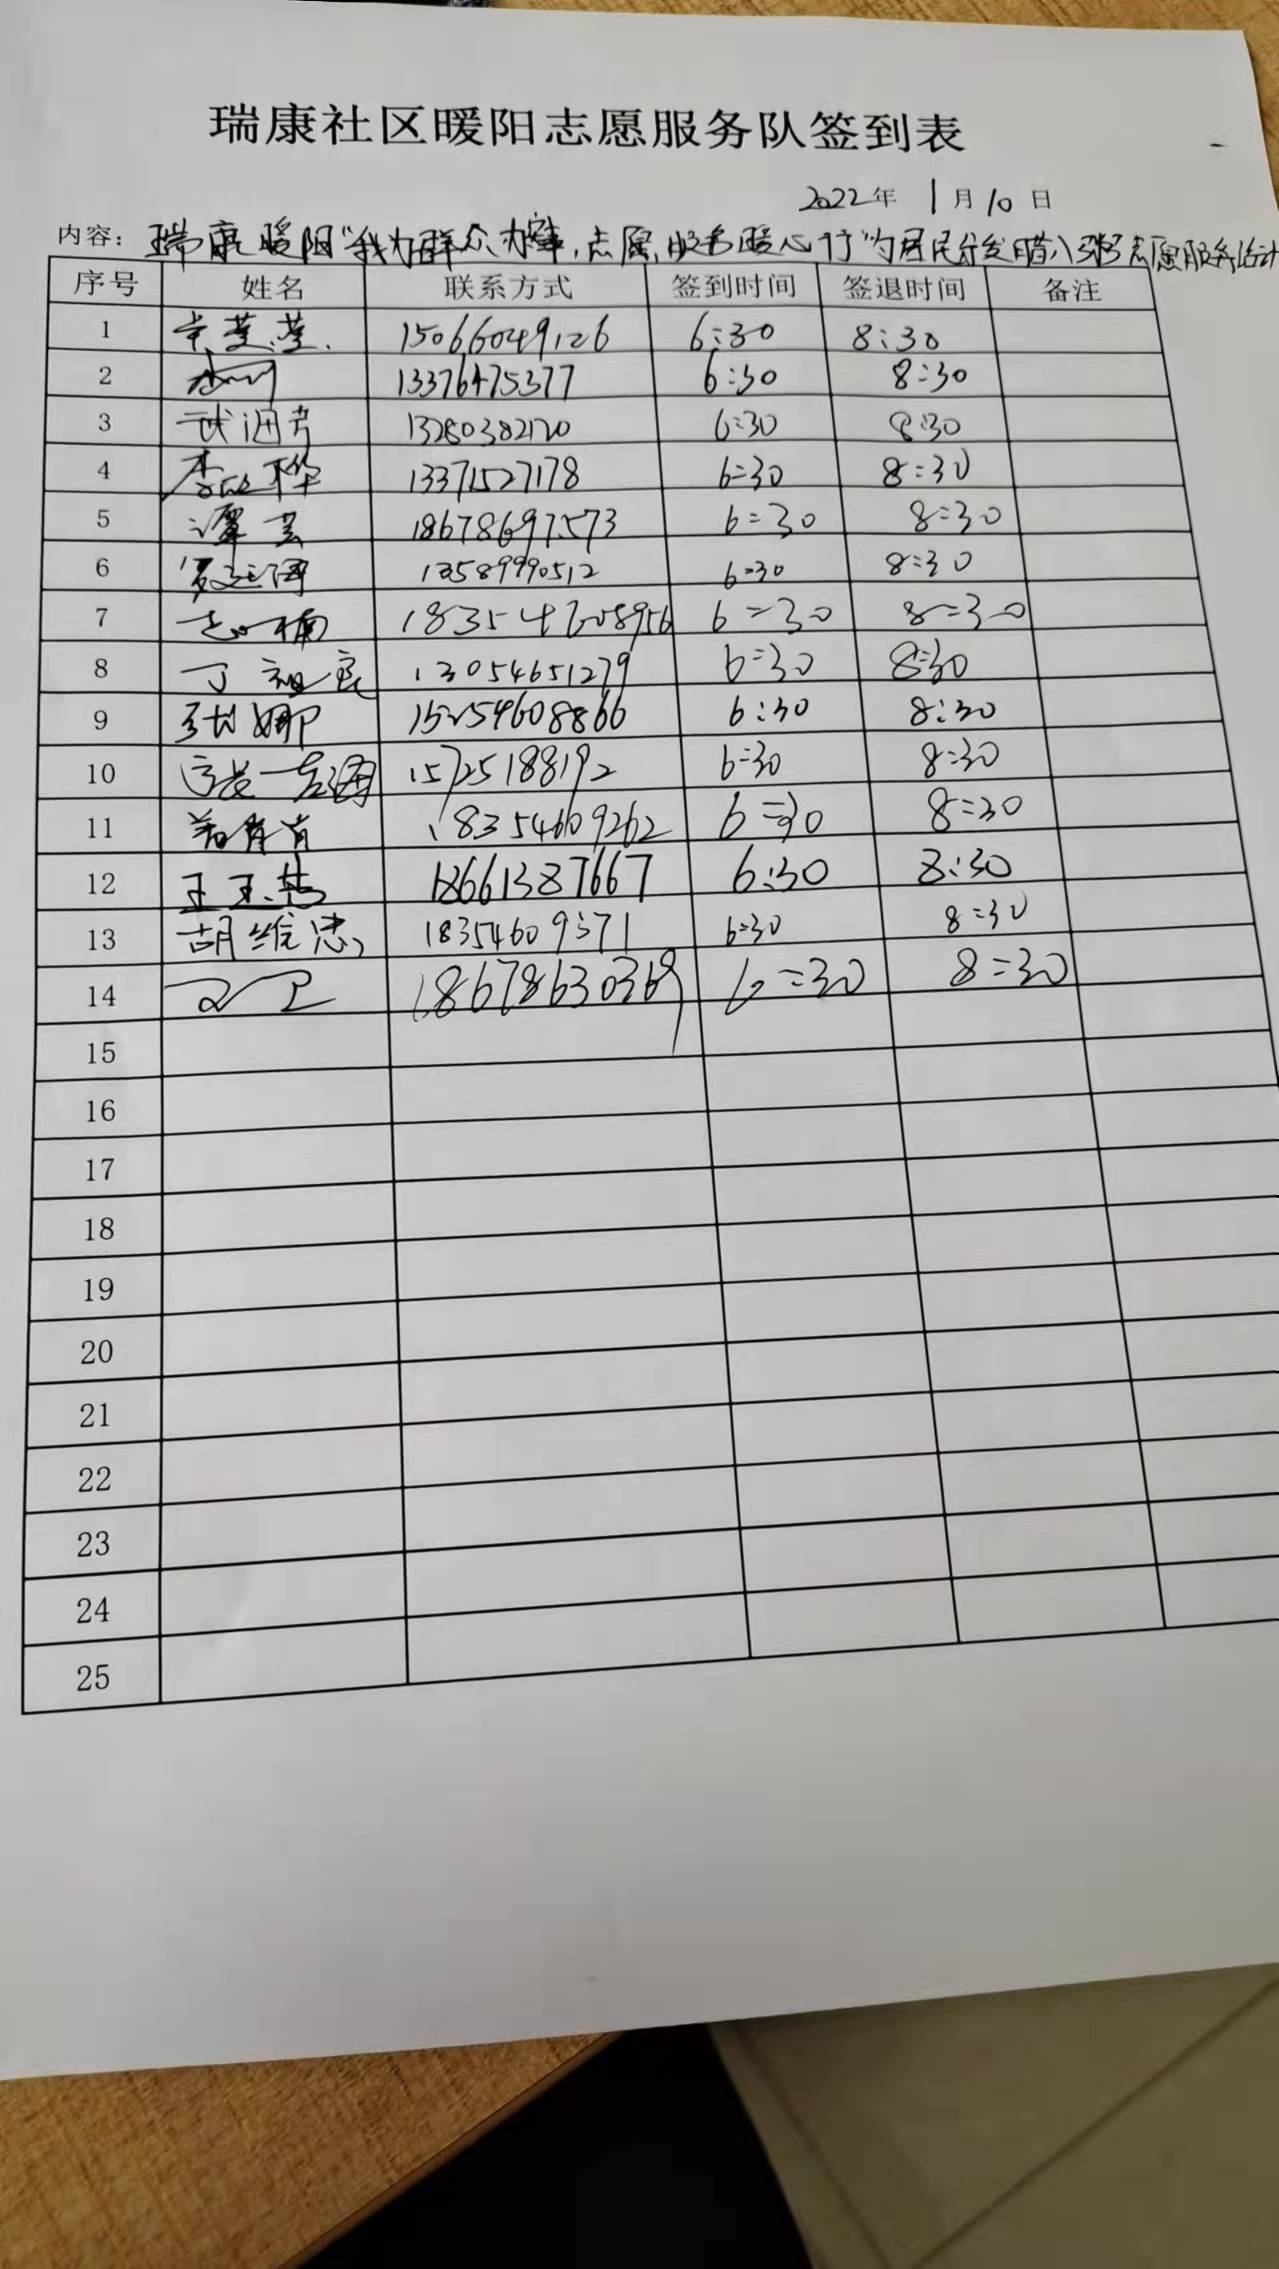 瑞康社区暖阳志愿服务队签到表
2022年 1月10日
内容：瑞康暖阳"我为群众办实事,志愿服务暖心行"为居民分发腊八粥志愿服务活动
序号 姓名 联系方式 签到时间 签退时间 备注
1 15066049126 6:30 8:30
2 13376475377 6:30 8:30
3 13280382120 6:30 8:30
4 13371527178 6:30 8:30
5 谭芸 18678697573 6:30 8:30
6 13589990512 6:30 8:30
7 18354608956 6:30 8:30
8 丁祖良 13054651279 6:30 8:30
9 张娜 15254608866 6:30 8:30
10 15725188192 6:30 8:30
11 18354609262 6:30 8:30
12 18661387667 6:30 8:30
13 胡维忠 18354609371 6:30 8:30
14 18678630369 6:30 8:30
15
16
17
18
19
20
21
22
23
24
25